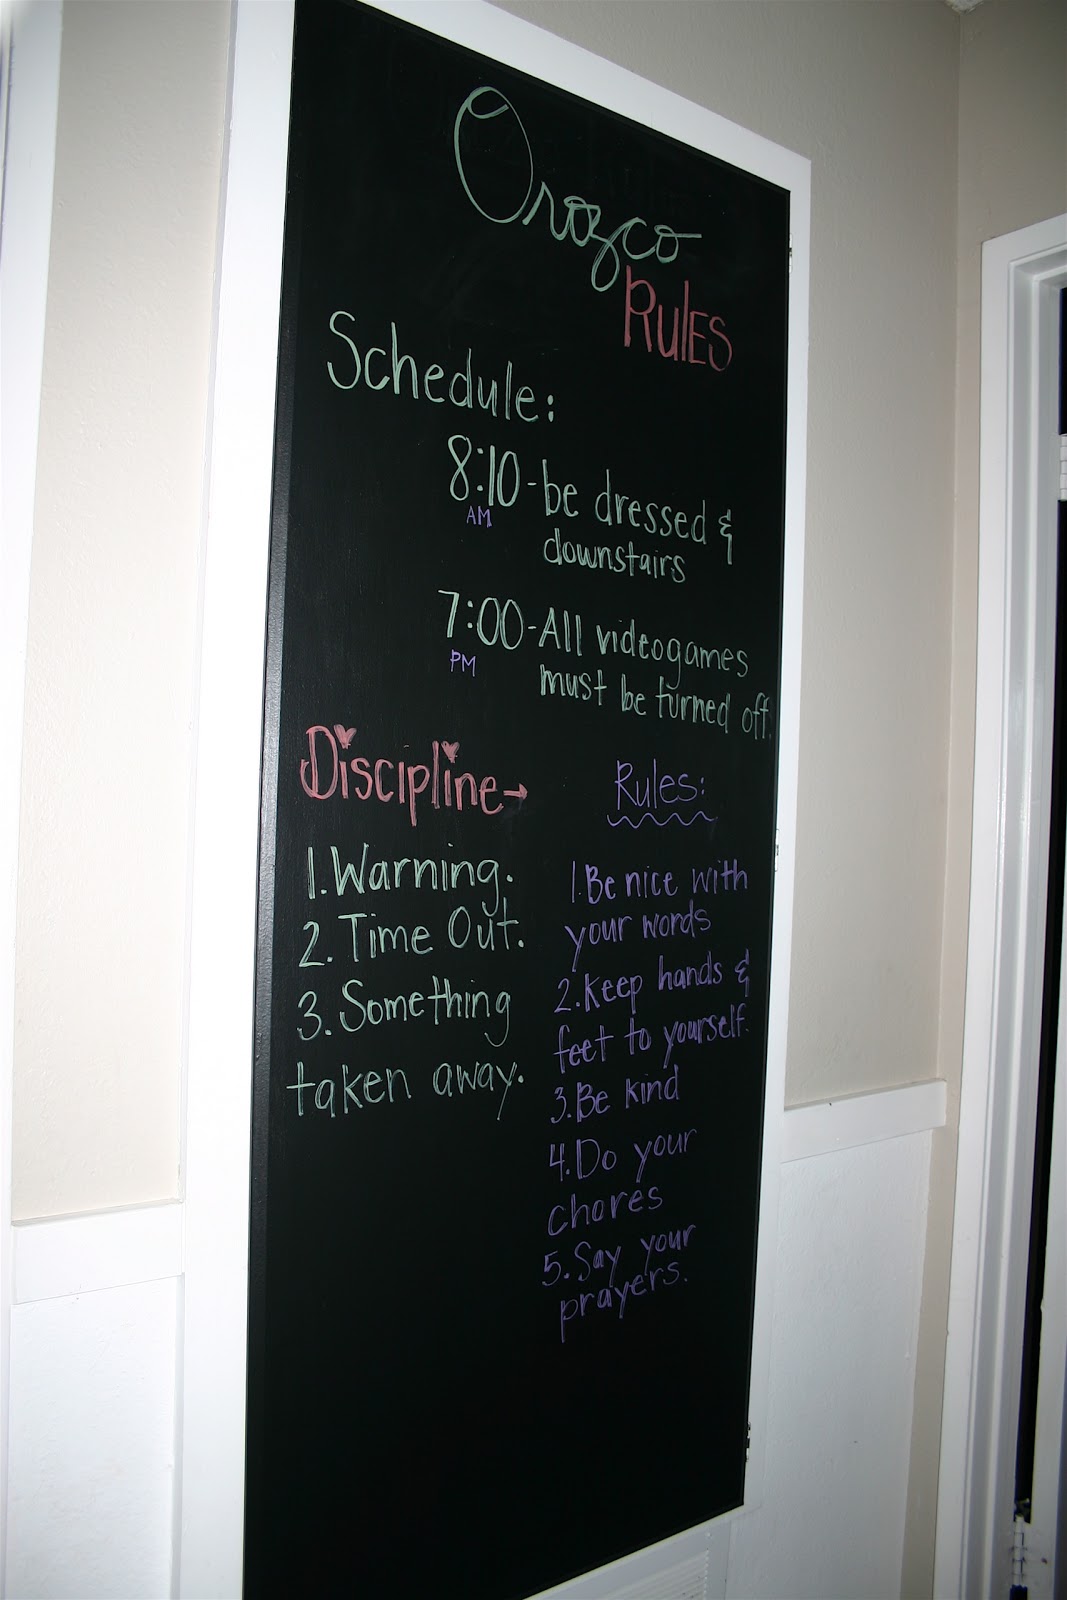 Orozco
Rules
Schedule:
8:10 - be dressed &
AM
downstairs
7:00 - All videogames
PM
must be turned off.
Discipline →
1. Warning.
2. Time Out.
3. Something
taken away.
Rules:
1. Be nice with
your words
2. Keep hands &
feet to yourself.
3. Be kind
4. Do your
chores
5. Say your
prayers.